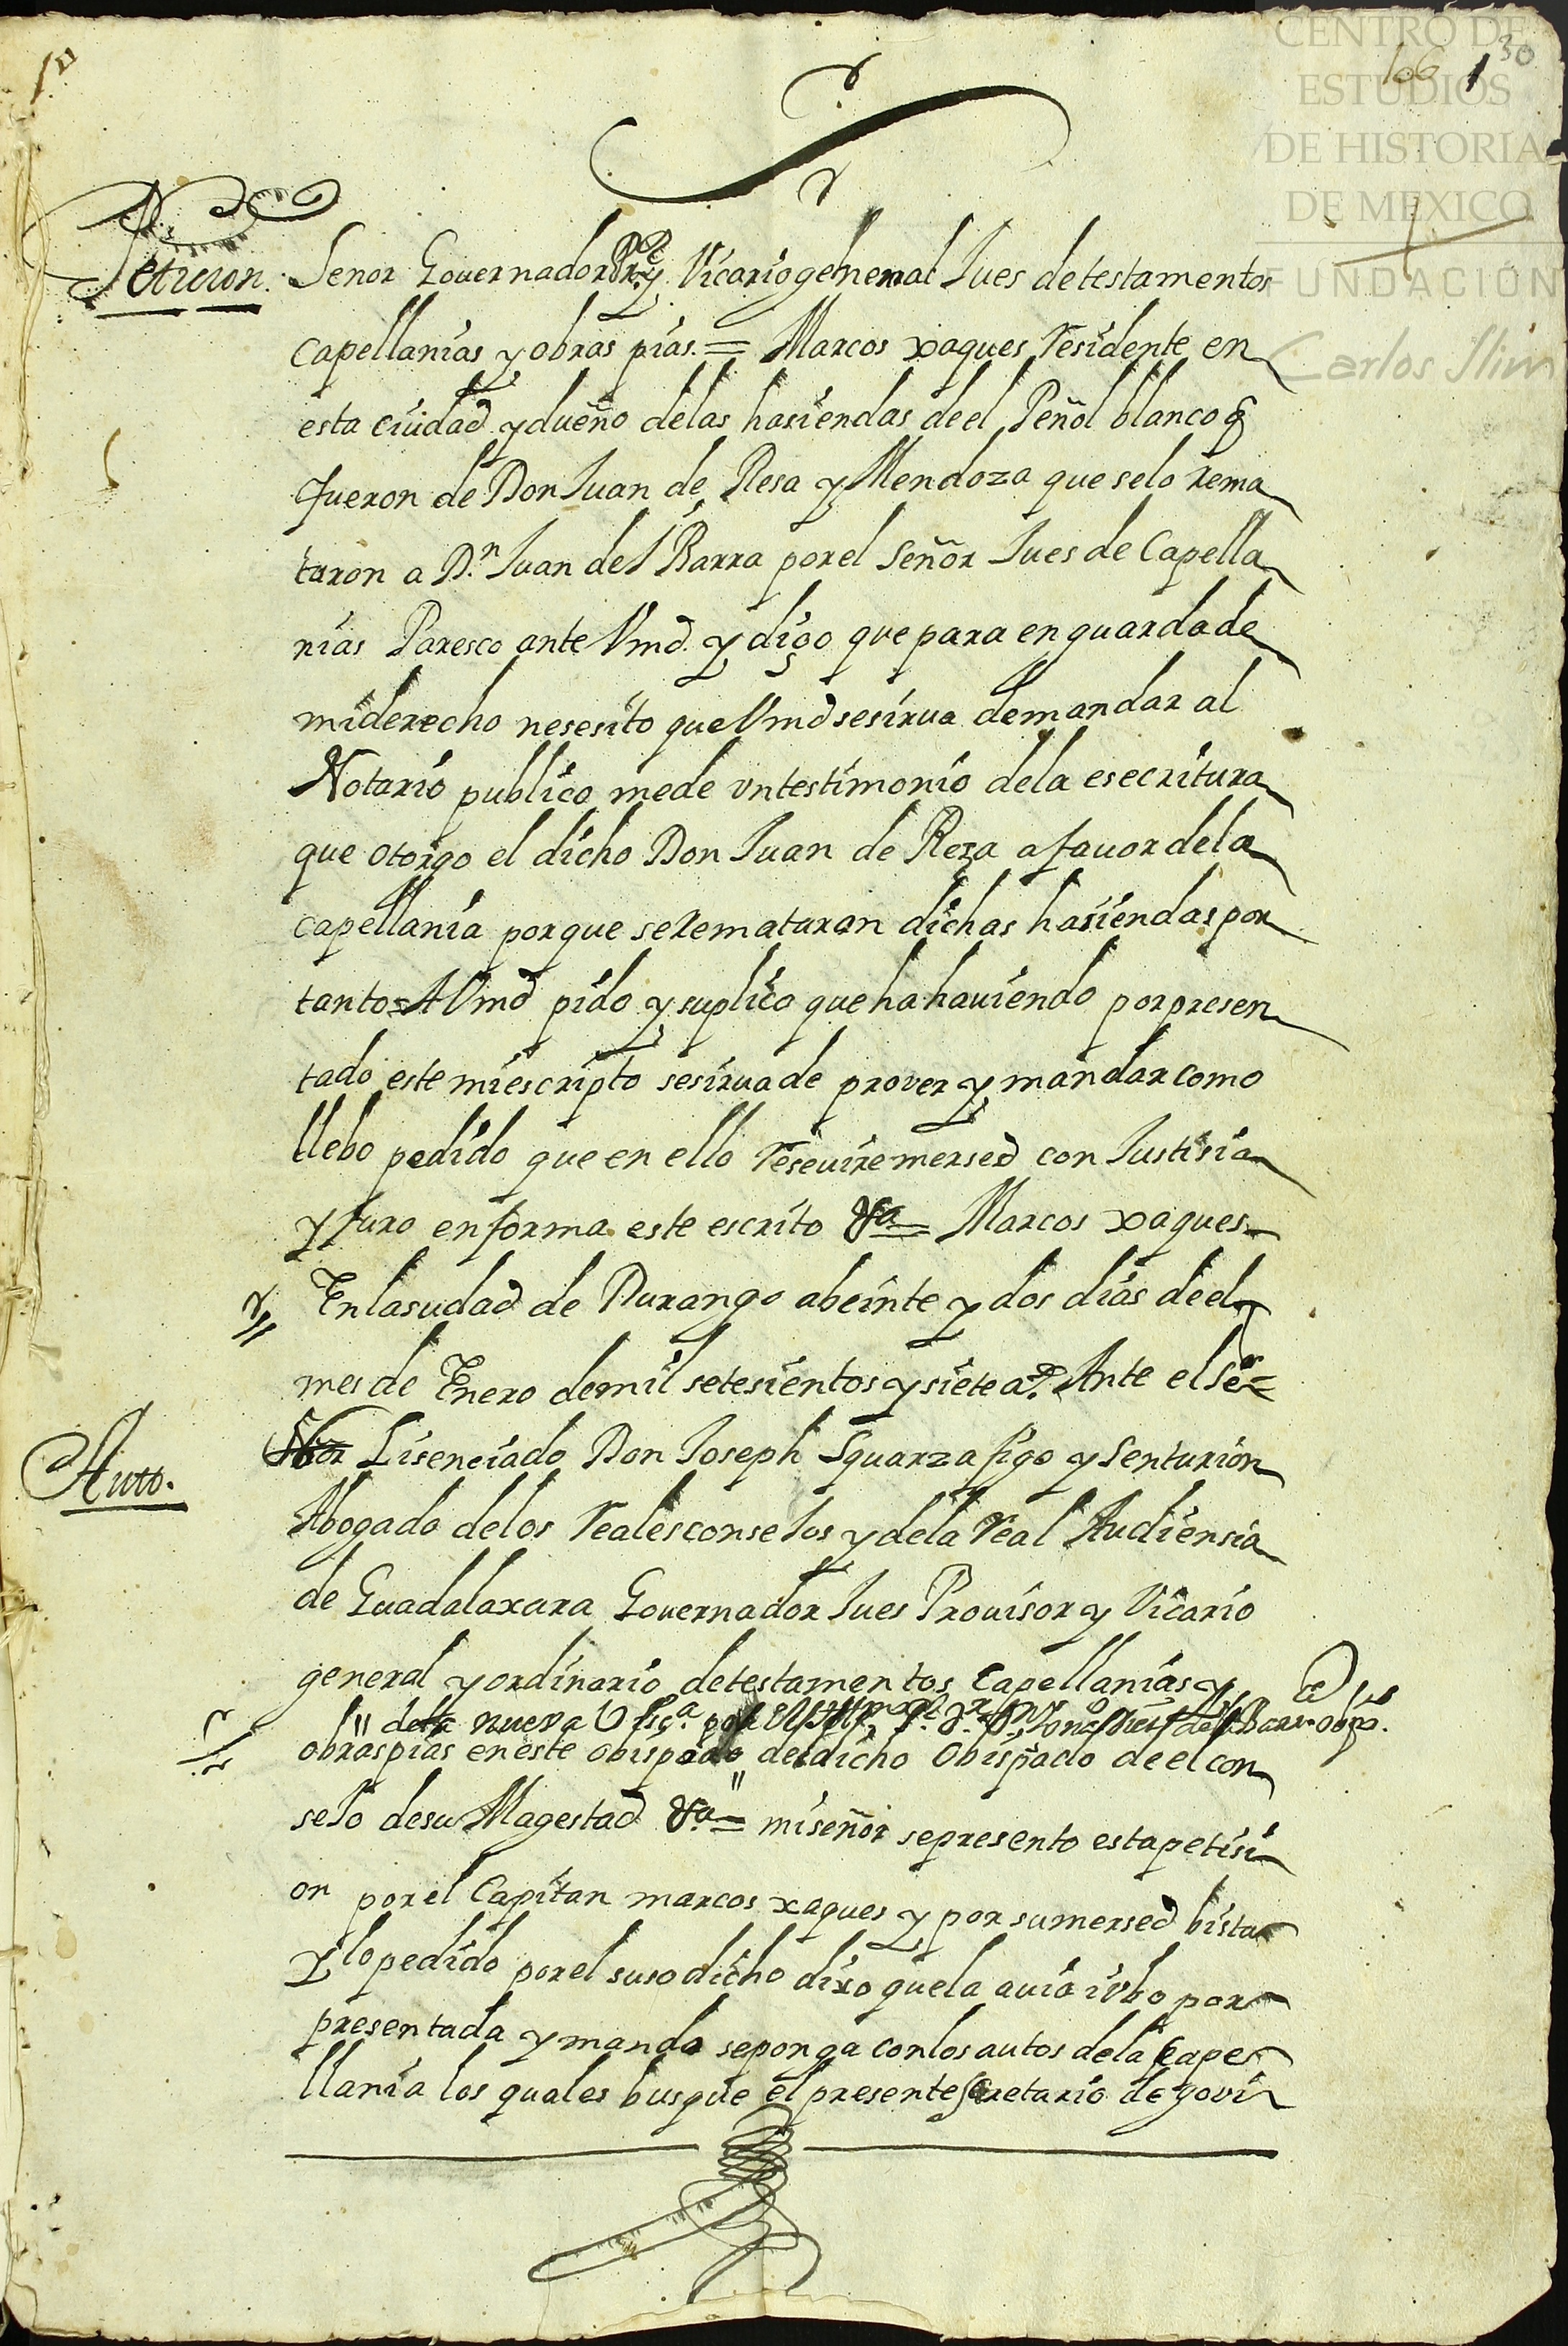 1º
CENTRO DE
ESTUDIOS
DE HISTORIA
DE MEXICO
FUNDACIÓN
Carlos Slim
106 1 30
Peticion. Señor Gouernador Pror. y Vicario general Jues de testamentos
capellanias y obras pias. = Marcos xaques residente en
esta ciudad y dueño de las hasiendas de el Peñol blanco q
fueron de Don Juan de Resa y Mendoza que se lo rema
taron a D.n Juan de Ibarra por el Señor Jues de Capella
nias Paresco ante Vmd. y digo que para en guarda de
mi derecho nesesito que Vmd se sirua de mandar al
Notario publico me de vn testimonio de la esecritura
que otorgo el dicho Don Juan de Reza a fauor de la
capellania porque se rematuran dichas hasiendas por
tanto = A Vmd pido y suplico que ha hauiendo por presen
tado este mi escripto se sirua de prover y mandar como
llebo pedido que en ello reseuire mersed con Justisia
y juro en forma este escrito &a = Marcos xaques
En la sudad de Durango a beinte y dos dias de el
mes de Enero de mil setesientos y siete a.s Ante el Se
Auto. ñor Lisenciado Don Joseph Squarzafigo y Senturion
Abogado de los reales conseJos y de la real Audiensia
de Guadalaxara Gouernador Jues Prouisor y Vicario
general y ordinario de testamentos Capellanias y
de la nueva Visc.a por el Yll.mo
obras pias en este obispado de dicho Obispado de el con
seJo de su Magestad &a = mi señor se presento esta petisi
on por el Capitan marcos xaques y por su mersed bista
Y lo pedido por el suso dicho dixo que la auia i vbo por
presentada y mando se ponga con los autos de la Cape
llania los quales busque el presente secretario de govi